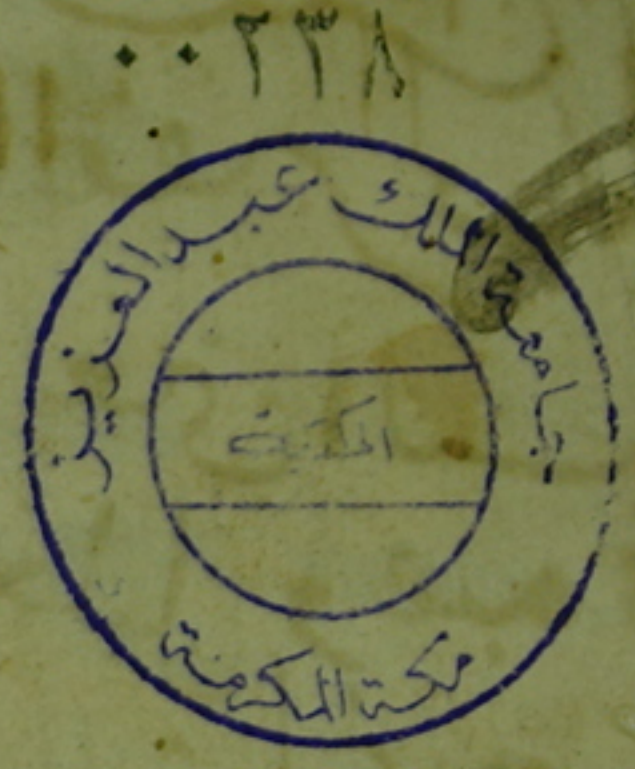 ٠٠٣٣٨
جامعة الملك عبد العزيز
المكتبة
مكة المكرمة